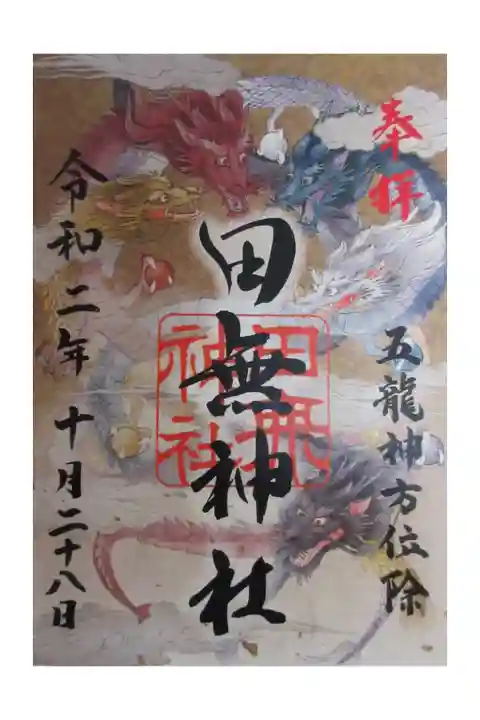 奉拝
五龍神方位除
田無神社
田無神社
令和二年 十月二十八日